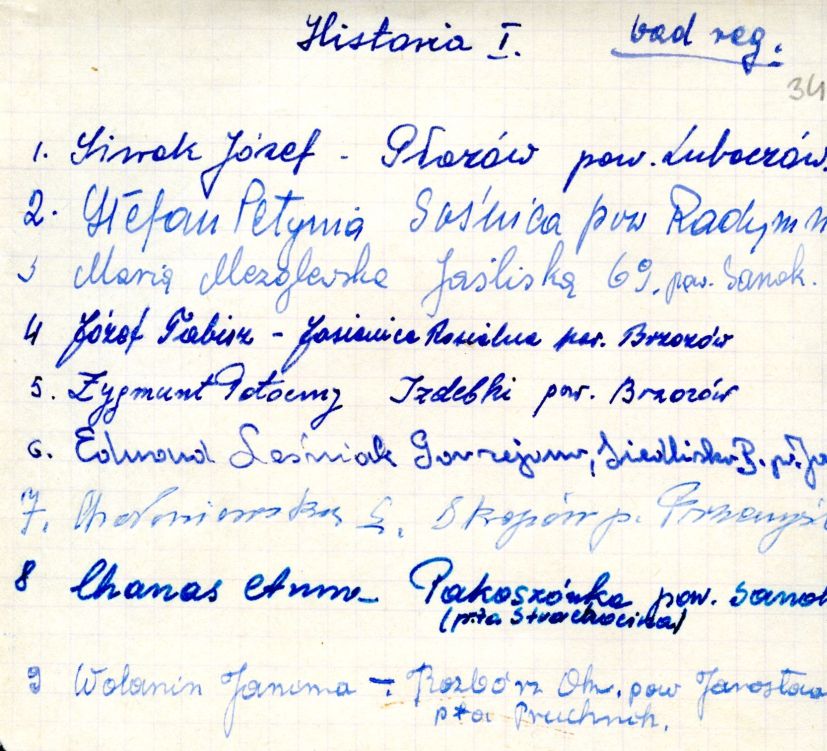 Historia I. bad reg.
34
1. Siwak Józef - Płazów pow. Lubaczów
2. Stefan Petynia Sośnica pow Radymn
3 Maria Jaśliska 69, pow. Sanok.
4 Józef Tabisz - Jasienica Rosielna pow. Brzozów
5. Zygmunt Potoczny Izdebki pow. Brzozów
6. Edmund Leśniak Siedliska B. p. Ja
7. S. Skopów p. Przemyśl
8 Chanas Anna Pakoszówka pow. Sanok
(p-ta Strachocina)
9 Wolanin Janina - Rozbórz Okr. pow Jarosław
p-ta Pruchnik.